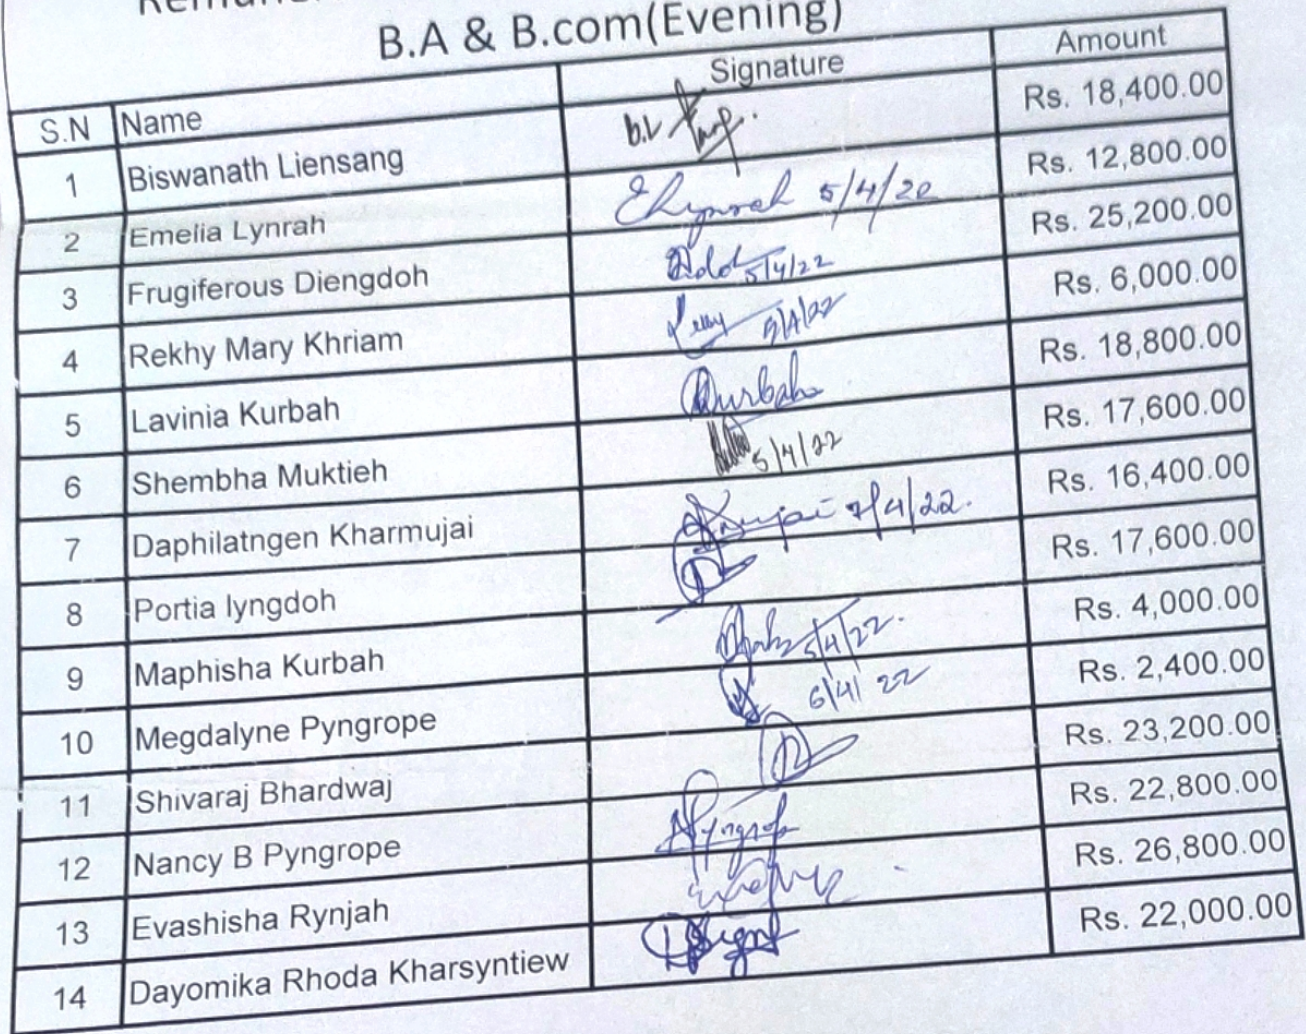 B.A & B.com(Evening)
S.N Name Signature Amount
1 Biswanath Liensang Rs. 18,400.00
2 Emelia Lynrah Elynrah 5/4/22 Rs. 12,800.00
3 Frugiferous Diengdoh 5/4/22 Rs. 25,200.00
4 Rekhy Mary Khriam 5/4/22 Rs. 6,000.00
5 Lavinia Kurbah Kurbah Rs. 18,800.00
6 Shembha Muktieh 5/4/22 Rs. 17,600.00
7 Daphilatngen Kharmujai 7/4/22. Rs. 16,400.00
8 Portia lyngdoh Rs. 17,600.00
9 Maphisha Kurbah 5/4/22. Rs. 4,000.00
10 Megdalyne Pyngrope 6/4/22 Rs. 2,400.00
11 Shivaraj Bhardwaj Rs. 23,200.00
12 Nancy B Pyngrope Rs. 22,800.00
13 Evashisha Rynjah Rs. 26,800.00
14 Dayomika Rhoda Kharsyntiew Rs. 22,000.00